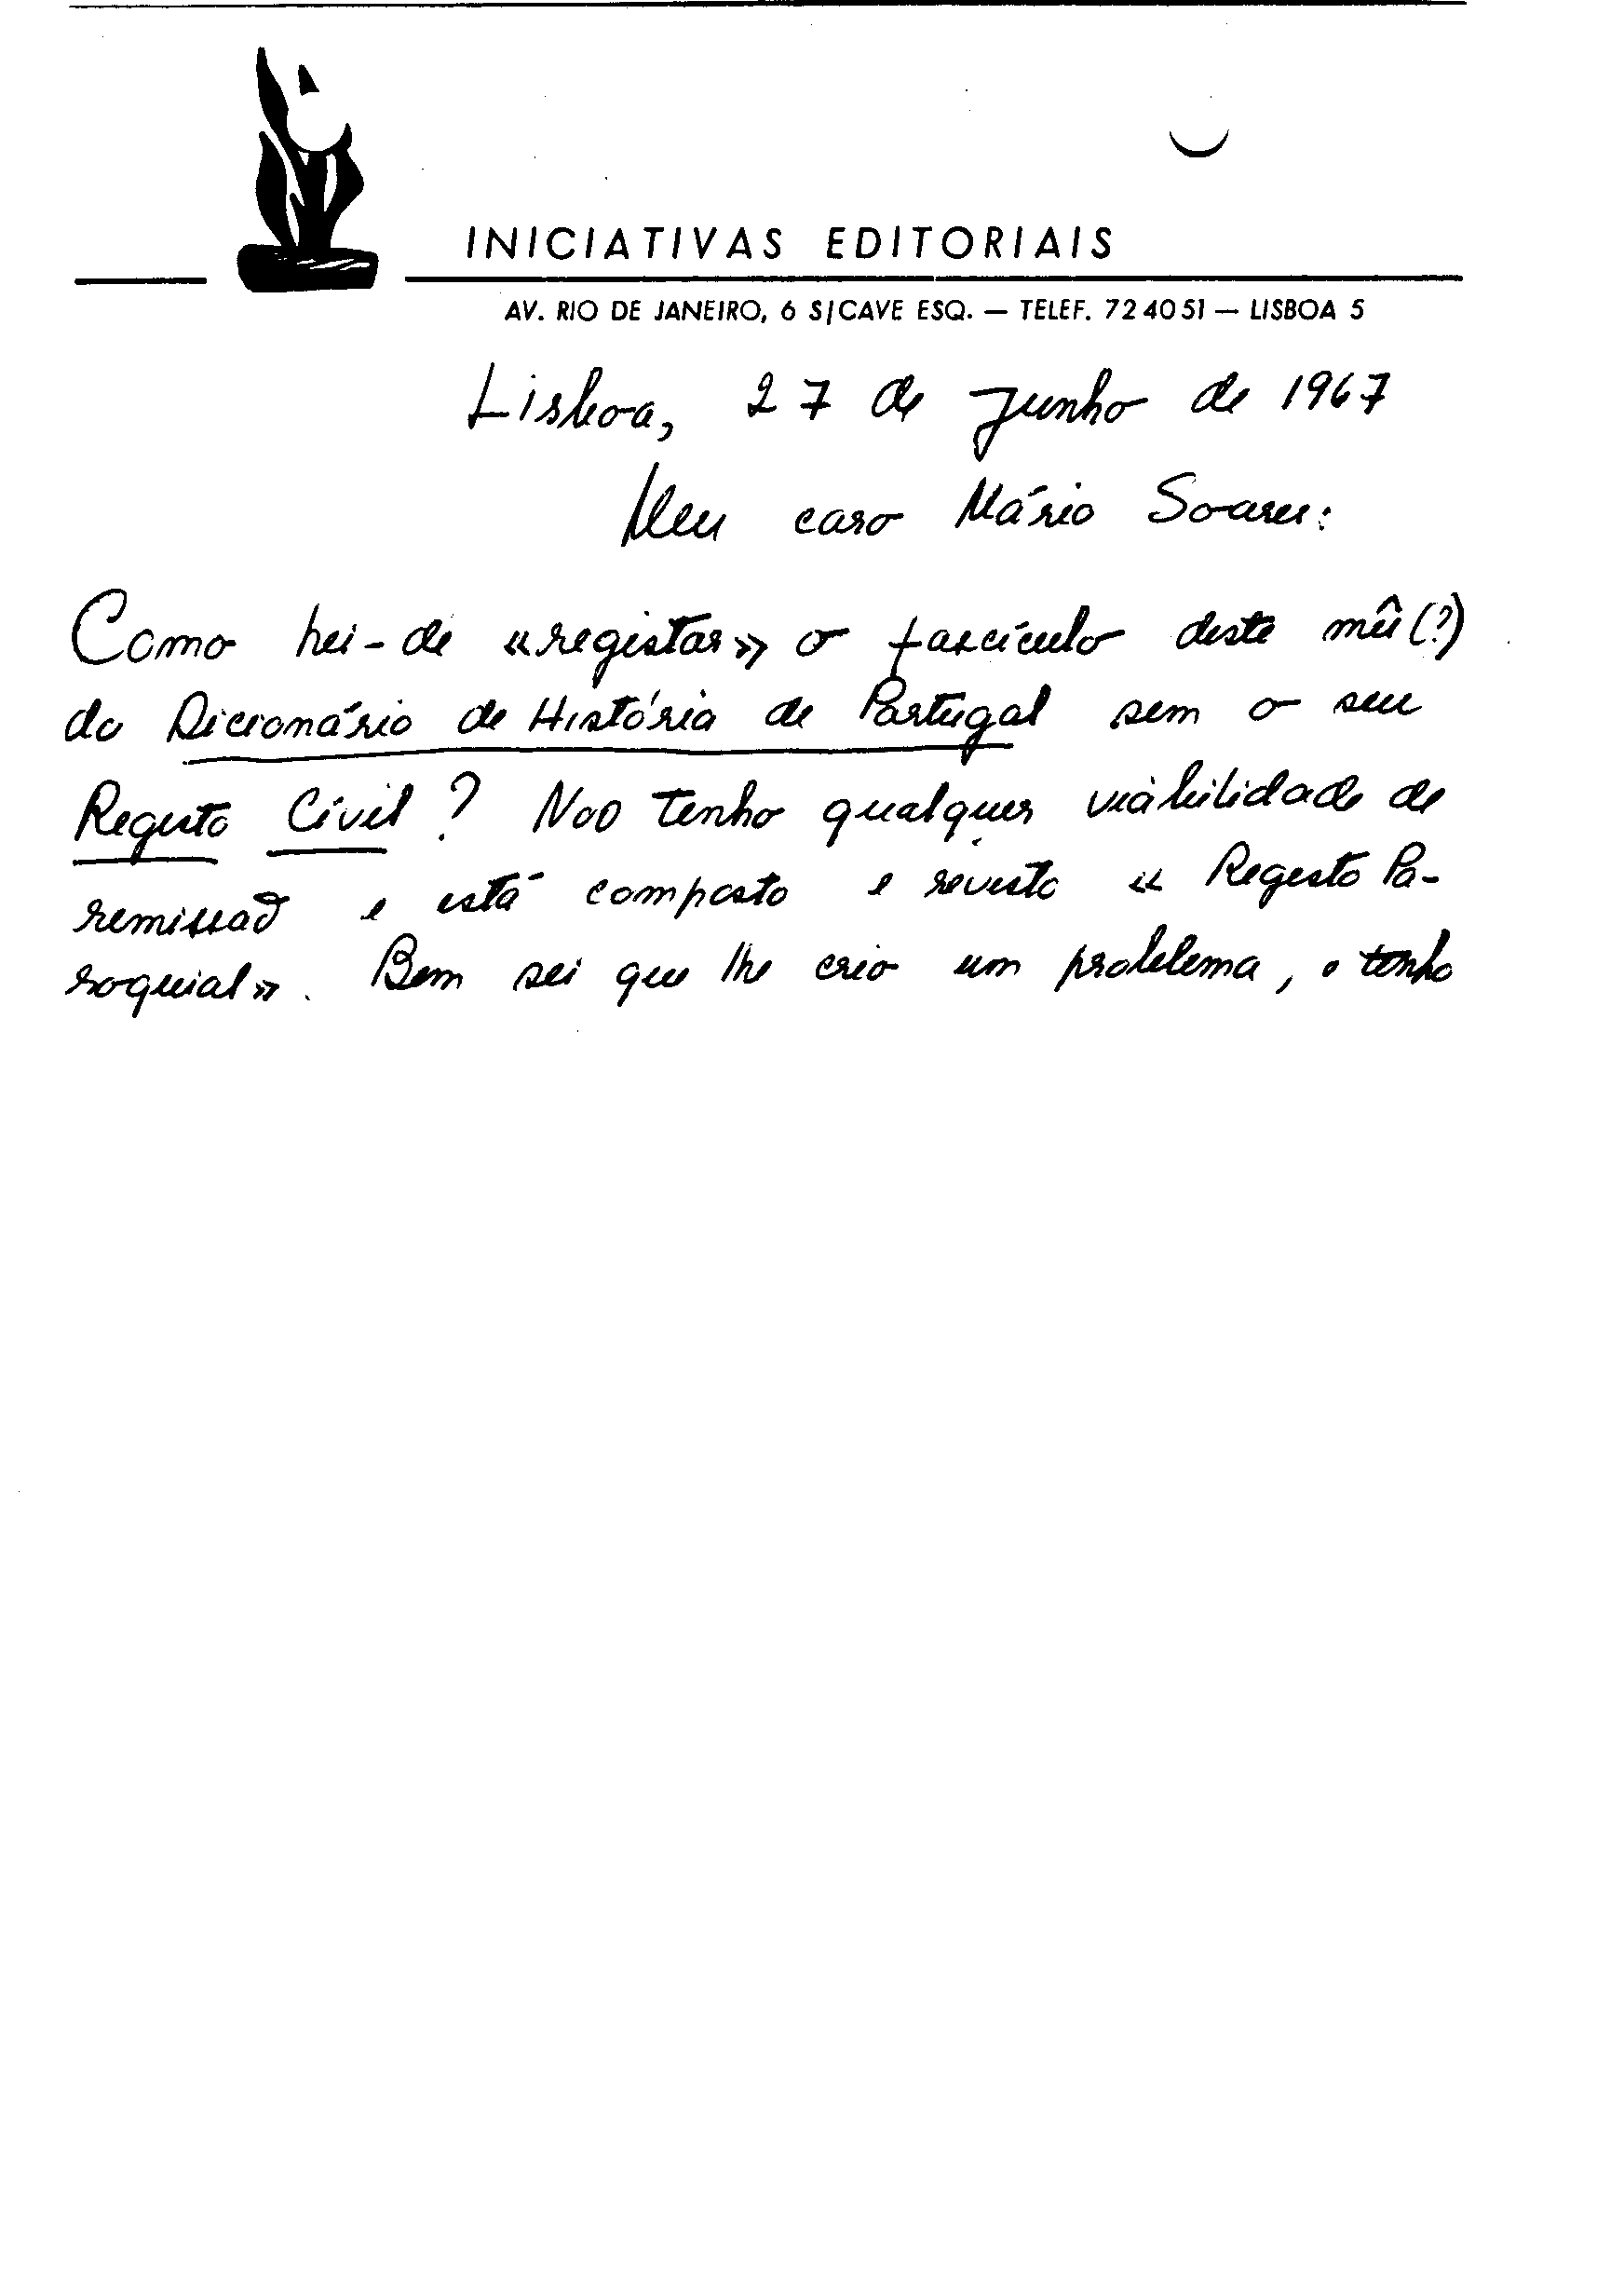 INICIATIVAS EDITORIAIS
AV. RIO DE JANEIRO, 6 S/CAVE ESQ. — TELEF. 72 40 51 — LISBOA 5
Lisboa, 27 de Junho de 1967
Meu caro Mário Soares:
Como hei-de «registar» o fascículo deste mês (?)
do Dicionário de História de Portugal sem o seu
Registo Civil? Não tenho qualquer viabilidade de
remissão e está composto e revisto « Registo Pa-
roquial». Bem sei que lhe crio um problema, e tenho